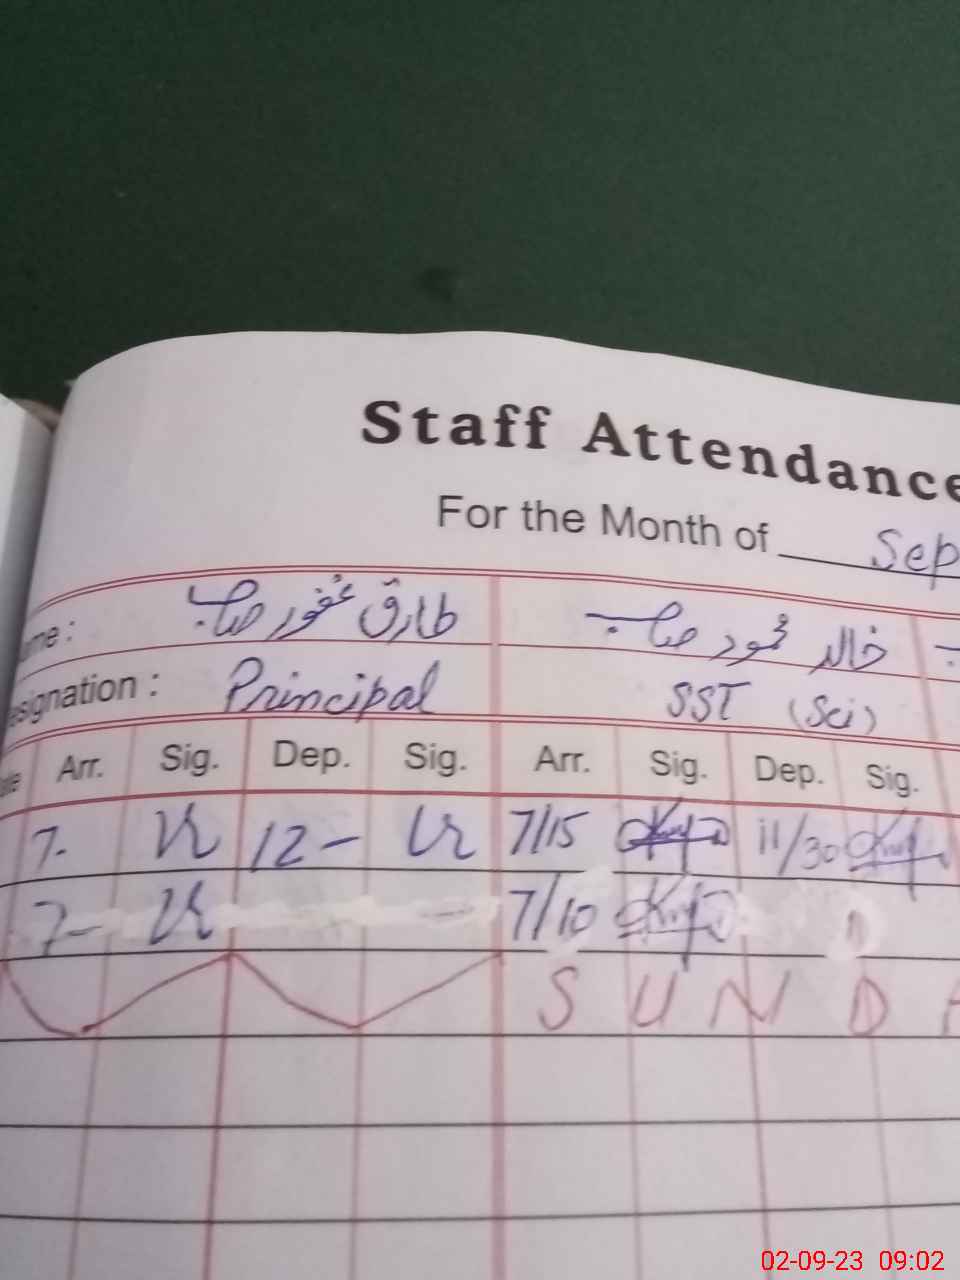 Staff Attendance
For the Month of Sep
طارق غفور صاحب خالد محمود صاحب
Designation : Principal SST (Sci)
Arr. Sig. Dep. Sig. Arr. Sig. Dep. Sig.
7- 12- 7/15 11/30
7- 7/10
S U N D A
02-09-23 09:02